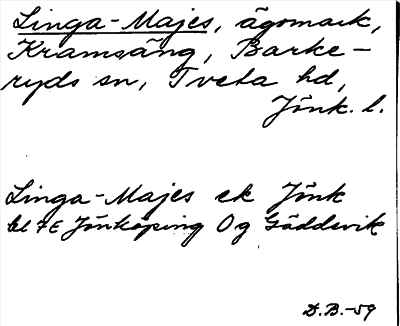 Linga-Majes, ägomark,
Kramsäng, Barke-
ryds sn, Tveta hd,
Jönk. l.
Linga-Majes ek Jönk
bl 7E Jönköping Og Gäddevik
D.B.-59